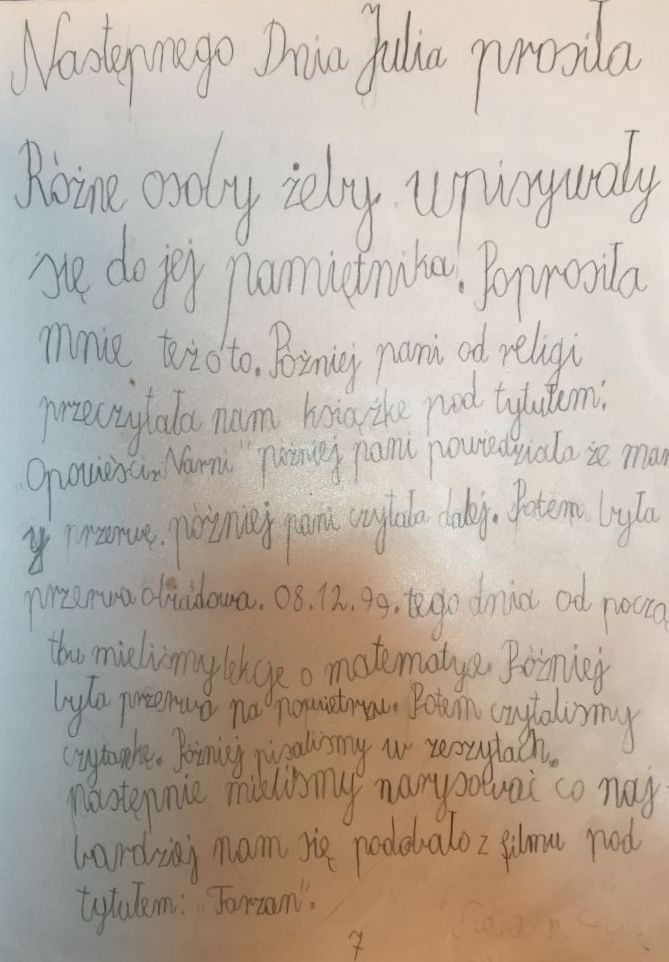 Następnego Dnia Julia prosiła
Różne osoby żeby wpisywały
się do jej pamiętnika. Poprosiła
mnie też o to. Pożniej pani od religi
przeczytała nam książke pod tytułem:
„Opowieści z Narni" pożniej pani powiedziała że mam
y przerwę. pożniej pani czytała dalej. Potem była
przerwa obiadowa. 08.12.99. tego dnia od począ
tku mieliśmy lekcje o matematyce. Pożniej
była przerwa na powietrzu. Potem czytaliśmy
czytankę. Pożniej pisaliśmy w zeszytach.
następnie mieliśmy narysować co naj
bardziej nam się podobało z filmu pod
tytułem: „Tarzan".
7